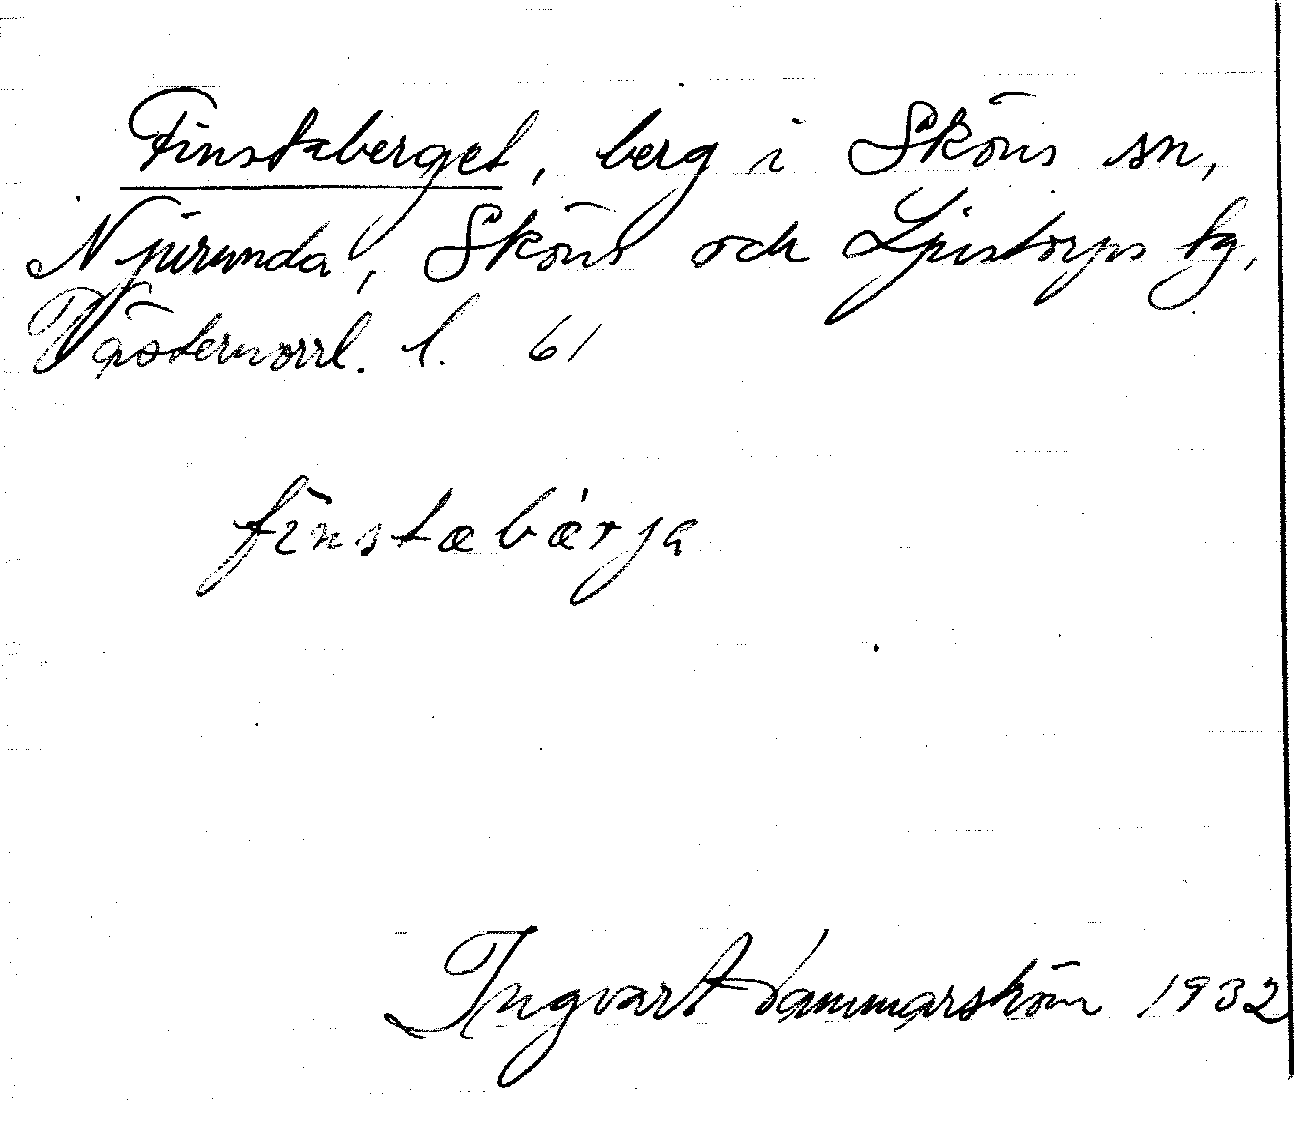 Finstaberget, berg i Sköns sn,
Njurunda, Sköns och Ljustorps tg,
Västernorrl. l. 61
finstabærja
Ingvart Hammarström 1932